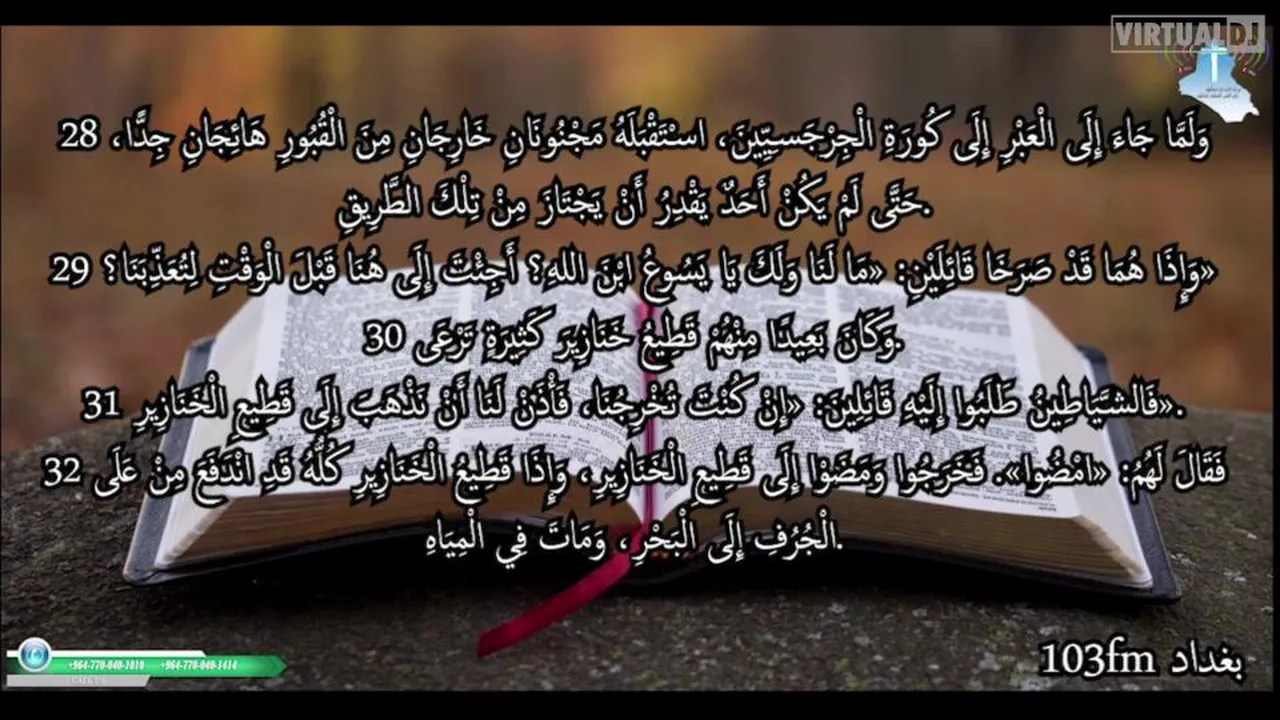 VIRTUALDJ
28 وَلَمَّا جَاءَ إِلَى الْعَبْرِ إِلَى كُورَةِ الْجِرْجَسِيِّينَ، اسْتَقْبَلَهُ مَجْنُونَانِ خَارِجَانِ مِنَ الْقُبُورِ هَائِجَانِ جِدًّا،
حَتَّى لَمْ يَكُنْ أَحَدٌ يَقْدِرُ أَنْ يَجْتَازَ مِنْ تِلْكَ الطَّرِيقِ.
29 وَإِذَا هُمَا قَدْ صَرَخَا قَائِلَيْنِ: «مَا لَنَا وَلَكَ يَا يَسُوعُ ابْنَ اللهِ؟ أَجِئْتَ إِلَى هُنَا قَبْلَ الْوَقْتِ لِتُعَذِّبَنَا؟»
30 وَكَانَ بَعِيدًا مِنْهُمْ قَطِيعُ خَنَازِيرَ كَثِيرَةٍ تَرْعَى.
31 فَالشَّيَاطِينُ طَلَبُوا إِلَيْهِ قَائِلِينَ: «إِنْ كُنْتَ تُخْرِجُنَا، فَأْذَنْ لَنَا أَنْ نَذْهَبَ إِلَى قَطِيعِ الْخَنَازِيرِ».
32 فَقَالَ لَهُمُ: «امْضُوا». فَخَرَجُوا وَمَضَوْا إِلَى قَطِيعِ الْخَنَازِيرِ، وَإِذَا قَطِيعُ الْخَنَازِيرِ كُلُّهُ قَدِ انْدَفَعَ مِنْ عَلَى
الْجُرُفِ إِلَى الْبَحْرِ، وَمَاتَ فِي الْمِيَاهِ.
+964-770-040-1010 +964-770-040-1414
بغداد 103fm